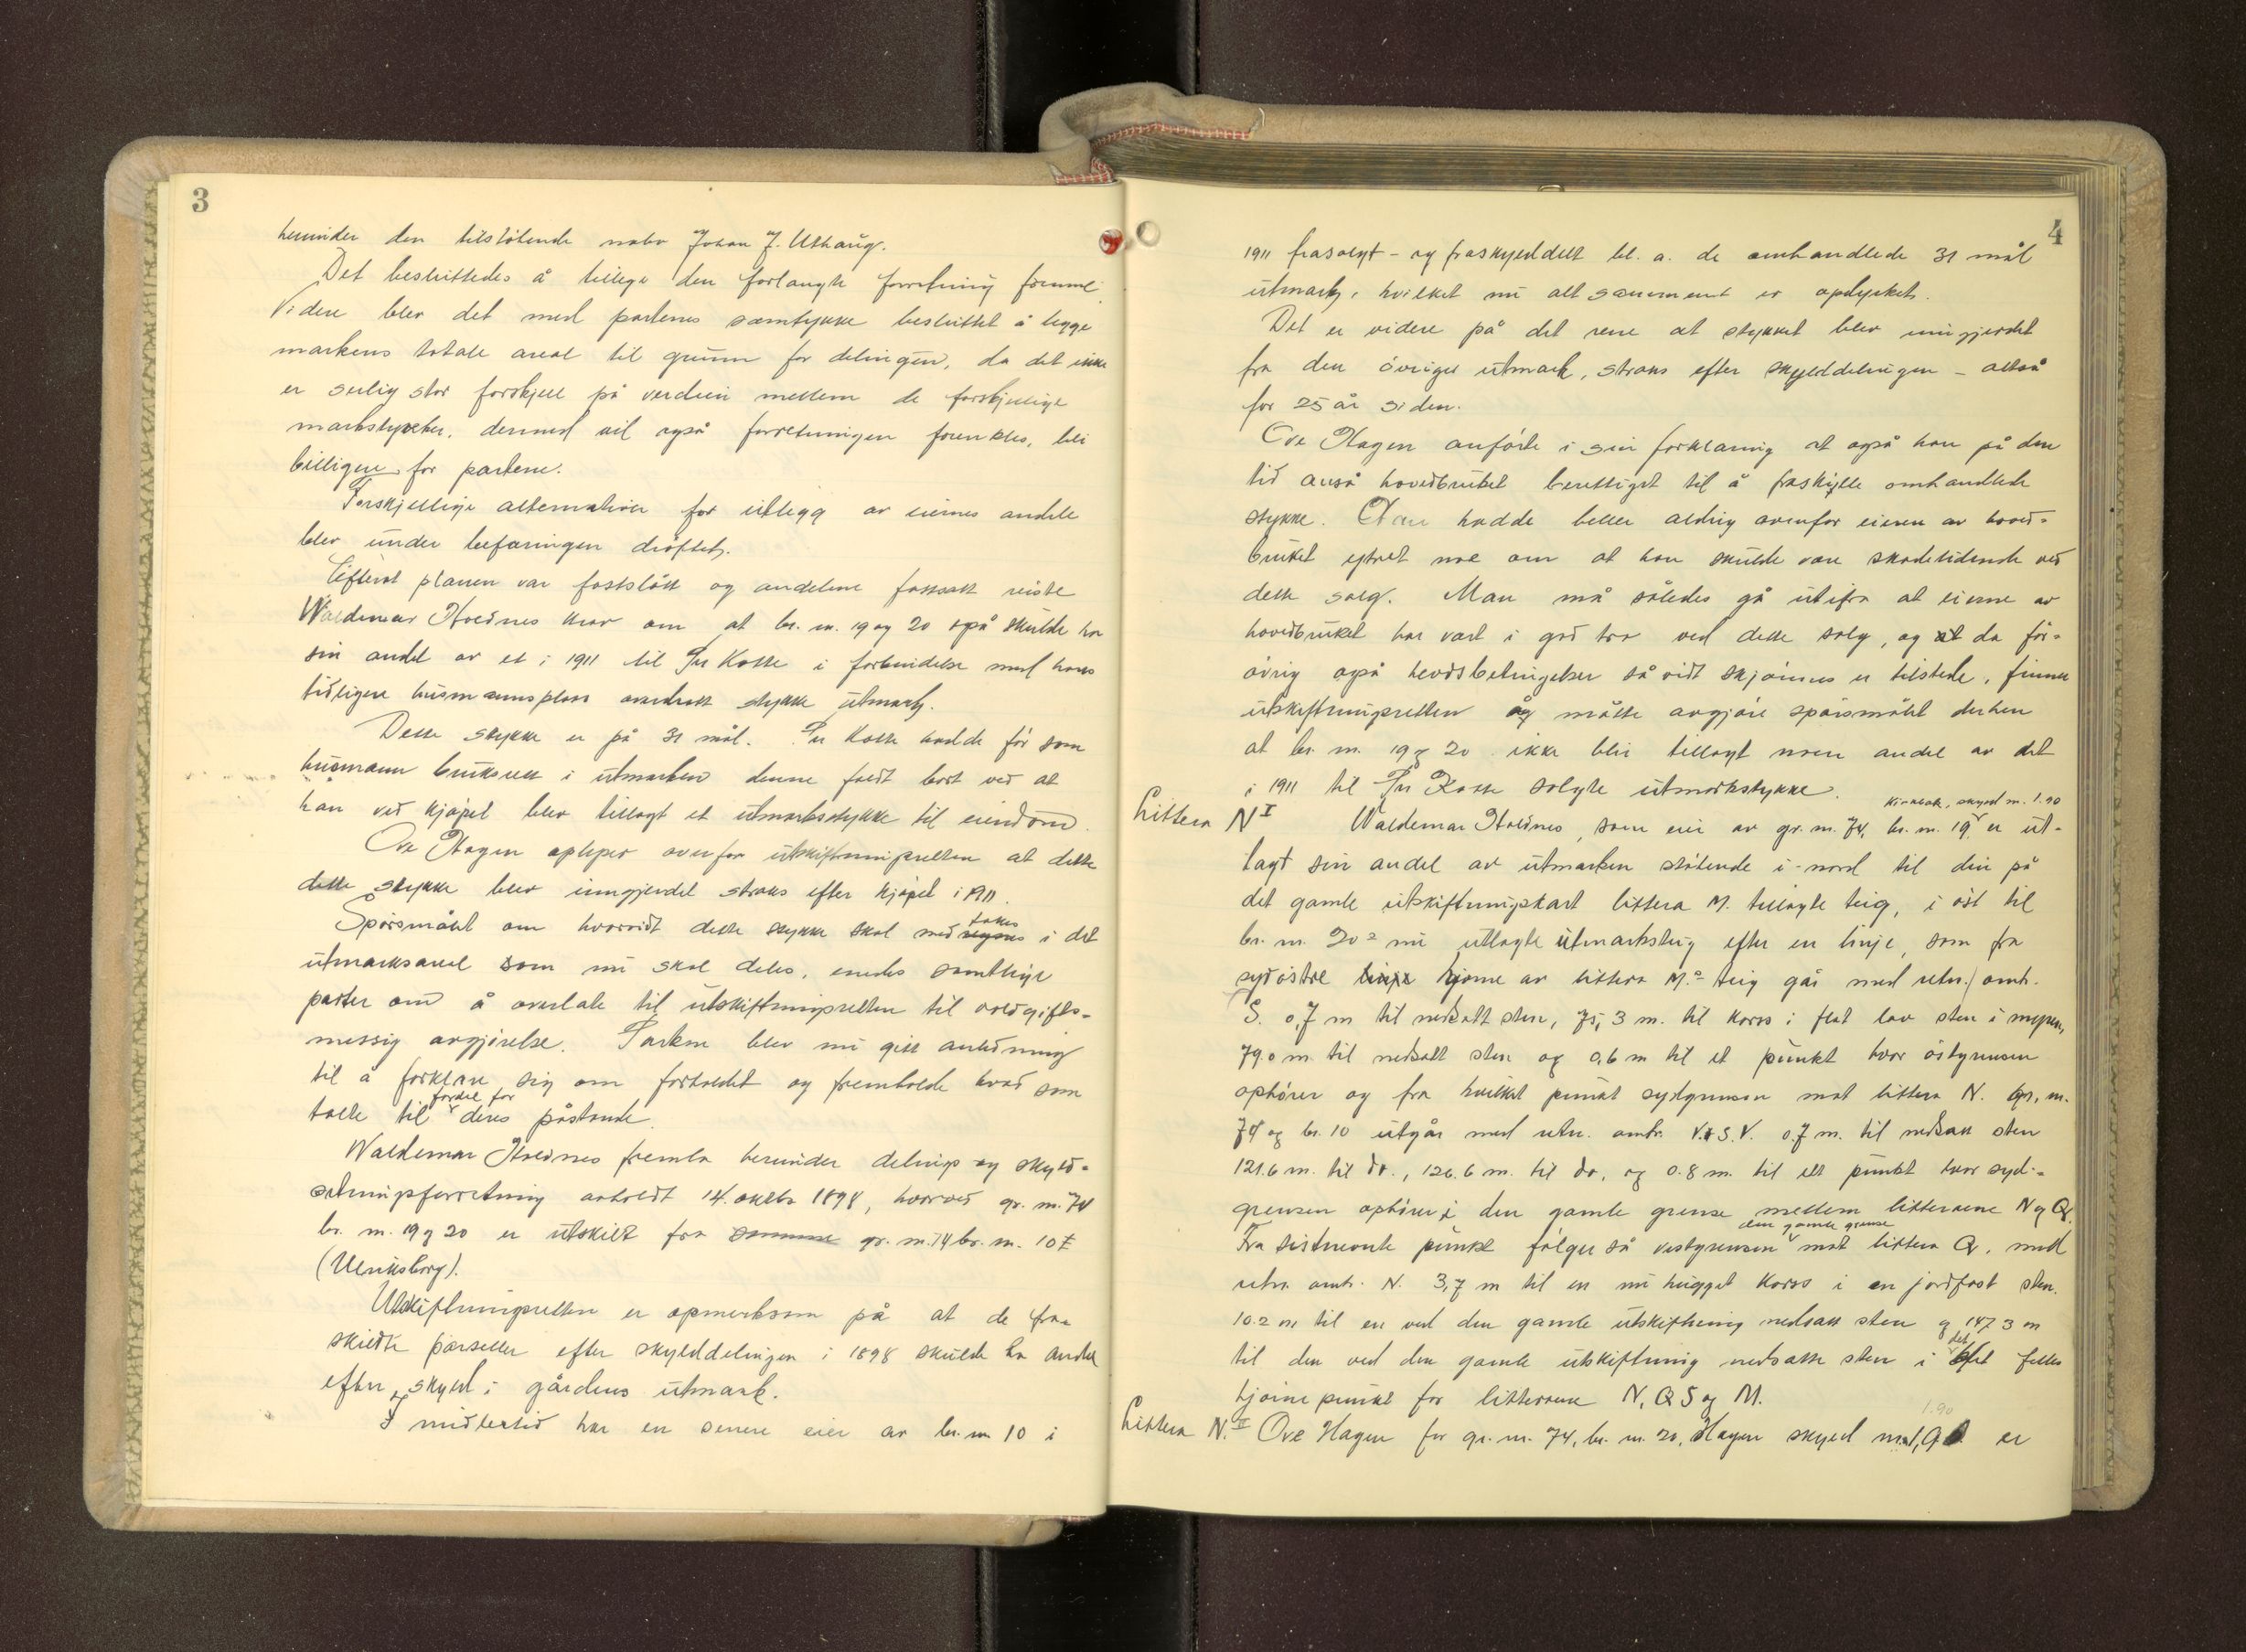 3
herunder den tilstötende nabo Johan J. Uthaug.
Det besluttedes å tillige den forlangte forretning fremme.
Videre blev det med partenes samtykke besluttet å legge
markens totale areal til grunn for delingen, da det ikke
er serlig stor forskjell på verdien mellem de forskjellige
markstykker, dermed vil også forretningen forenkles, bli
billigere for partene.
Forskjellige alternativer for utlegg av eiernes andele
blev under befaringen dröftet.
Efterat planen var fastslått og andelene fastsatt reiste
Waldemar Holdnes krav om at br. nr. 19 og 20 også skulde ha
sin andel av et i 1911 til Kotte i forbindelse med hans
tidligere husmannsplass overdratt stykke utmark.
Dette stykke er på 31 mål. Kotte hadde för som
husmann bruksrett i utmarken denne faldt bort ved at
han ved kjöpet blev tillagt et utmarksstykke til eiendom.
Ove Hagen oplyser overfor utskiftningsretten at dette
dette stykke blev inngjerdet straks efter kjöpet i 1911.
Spörsmålet om hvorvidt dette stykke skal medregnes takes i det
utmarksareal som nu skal deles, enedes samtlige
parter om å overlate til utskiftningsretten til voldgifts-
messig avgjörelse. Partene blev nu gitt anledning
til å forklare sig om forholdet og fremholde hvad som
talte til fordel for deres påstande.
Waldemar Holdnes fremla herunder delings og skyld-
setningsforretning avholdt 14. oktbr 1898, hvorved gr. nr. 74
br. nr. 19 og 20 er utskilt fra samme gr. nr. 74 br. nr. 10
(Ulriksborg).
Utskiftningsretten er opmerksom på at de fra-
skilte parseller efter skylddelingen i 1898 skulde ha andel
efter skyld i gårdens utmark.
I midlertid har en senere eier av br. nr 10 i
4
1911 frasolgt - og fraskylddelt bl. a. de omhandlede 31 mål
utmark, hvilket nu alt sammen er opdyrket.
Det er videre på det rene at stykket blev inngjerdet
fra den övrige utmark, straks efter skylddelingen - altså
for 25 år siden.
Ove Hagen anförte i sin forklaring at også han på den
tid anså hovedbruket berettiget til å fraskylle omhandlede
stykke. Han hadde heller aldrig ovenfor eieren av hoved-
bruket ytret noe om at han skulde være skadelidende ved
dette salg. Man må således gå utifra at eierne av
hovedbruket har vært i god tro ved dette salg, og at da for-
övrig også hevdsbetingelser så vidt skjönnes er tilstede, finner
utskiftningsretten og måtte avgjöre spörsmålet derhen
at br. nr. 19 og 20 ikke blir tillagt noen andel av det
i 1911 til Kotte solgte utmarksstykke.
Littera N I Waldemar Holdnes, som eier av gr. nr. 74, br. nr. 19 skyld m. 1.90 er ut-
lagt sin andel av utmarken stötende i nord til den på
det gamle utskiftningskart littera M. tillagte teig, i öst til
br. nr. 20's nu utlagte utmarksteig efter en linje, som fra
sydöstre linje hjörne av littera M's teig går med retn. omtr.
S. 0,7 m til nedsatt sten, 75,3 m. til kors i flat lav sten i myren,
79,0 m. til nedsatt sten og 0,6 m til et punkt hvor östgrensen
ophörer og fra hvilket punkt sydgrensen mot littera N. gr. nr.
74 og br. 10 utgår med retn. omtr. V.t.S.V. 0.7 m. til nedsatt sten
121.6 m. til do., 126.6 m. til do, og 0.8 m. til ett punkt hvor syd-
grensen ophörer i den gamle grense mellem litterane N og Q.
Fra sistnevnte punkt fölger så vestgrensen den gamle grense mot littera Q. med
retn. omtr. N. 3,7 m til en nu hugget kors i en jordfast sten.
10.2 m til en ved den gamle utskiftning nedsatt sten og 147.3 m
til den ved den gamle utskiftning nedsatte sten i det felles
hjörnepunkt for litterane N, Q S og M.
Littera N. II Ove Hagen for gr. nr. 74, br. nr. 20, Hagen skyld m. 1,90 1.90 er